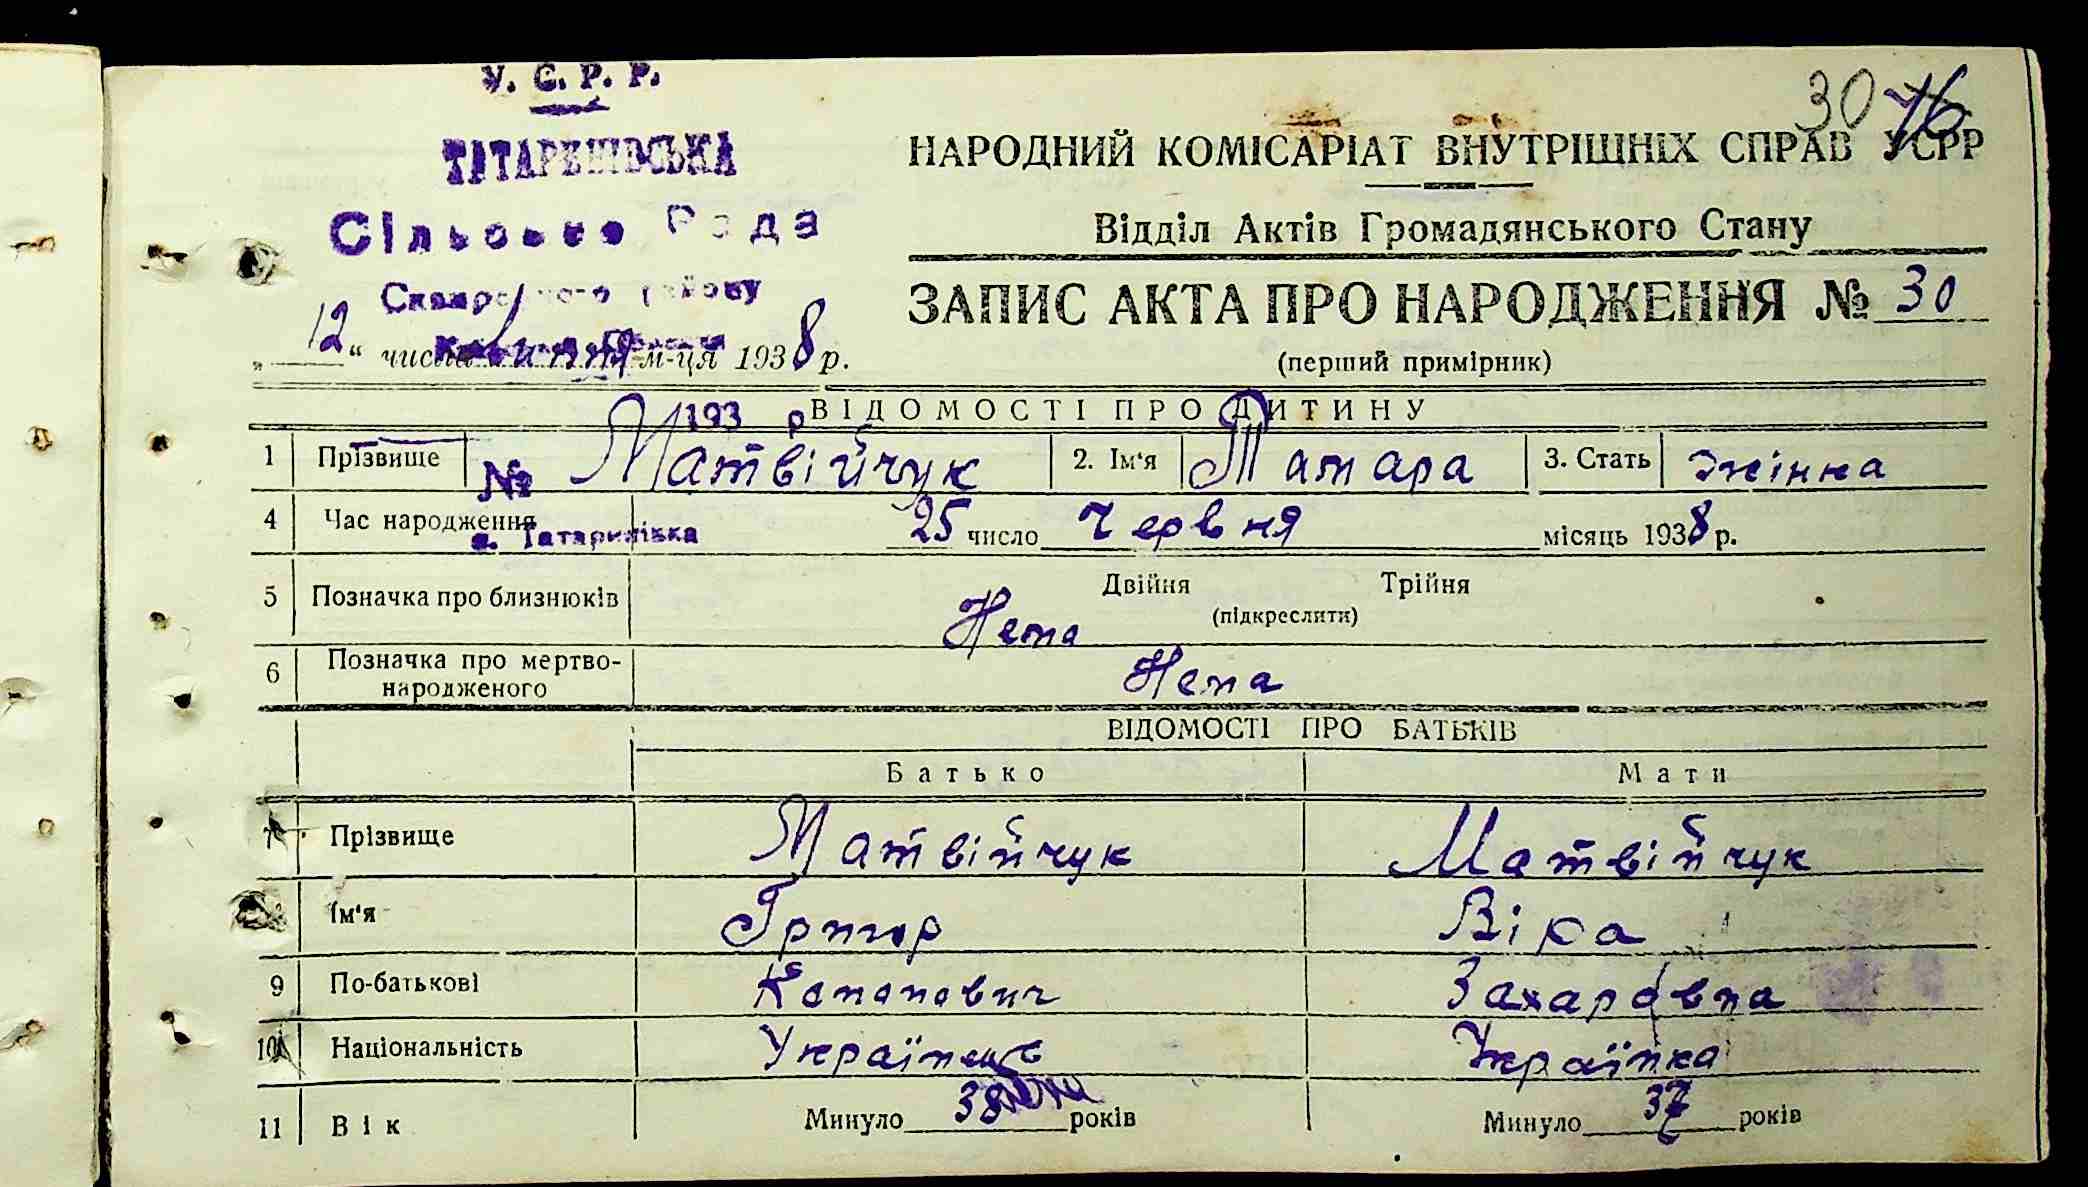 У. С. Р. Р.
30 46
ТАТАРИНІВСЬКА
НАРОДНИЙ КОМІСАРІАТ ВНУТРІШНІХ СПРАВ УСРР
Сільська Рада
Відділ Актів Громадянського Стану
Сквирського району
ЗАПИС АКТА ПРО НАРОДЖЕННЯ № 30
„ 12 “ число липня м-ця 1938 р.
(перший примірник)
193 р
ВІДОМОСТІ ПРО ДИТИНУ
1 Прізвище Матвійчук 2. Ім'я Тамара 3. Стать жінка
№
4 Час народження 25 число червня місяць 1938 р.
с. Татаринівка
5 Позначка про близнюків Двійня Трійня
(підкреслити)
Нема
6 Позначка про мертво-
народженого Нема
ВІДОМОСТІ ПРО БАТЬКІВ
Батько Мати
7 Прізвище Матвійчук Матвійчук
Ім'я Григор Віра
9 По-батькові Кононович Захаровна
10 Національність Українець Українка
11 Вік Минуло 38 років Минуло 37 років